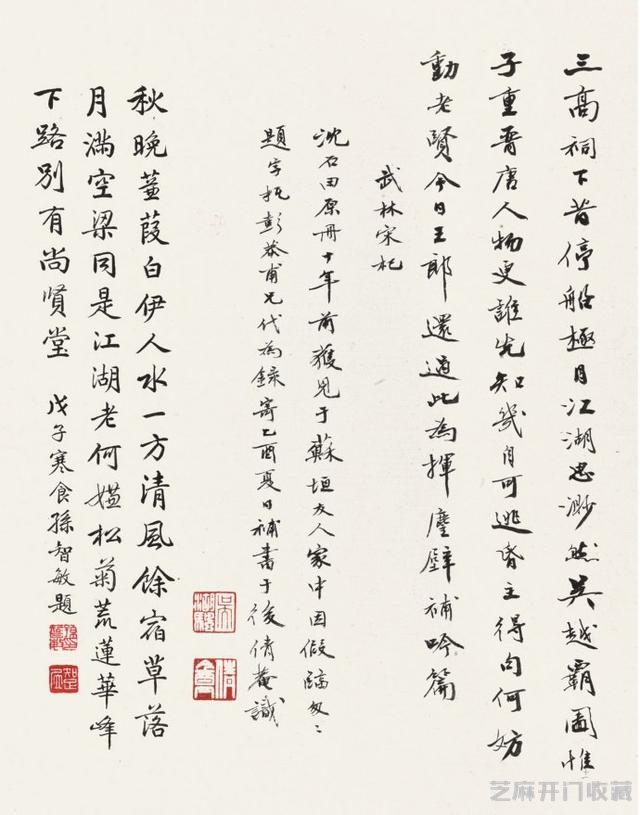 三高祠下昔停船極目江湖思渺然吳越霸圖惟
子重晉唐人物更誰先知幾自可逃昏主得肉何妨
動老賢今日王郎還過此為揮塵壁補吟篇
武林宋杞
沈石田原冊十年前獲見于蘇垣友人家中因假臨匆匆
題字托彭恭甫兄代為錄寄乙酉夏日補書于後倩菴識
秋晚蒹葭白伊人水一方清風餘宿草落
月滿空梁同是江湖老何媼松菊荒蓮華峰
下路別有尚賢堂
戊子寒食孫智敏題
芝麻开门收藏